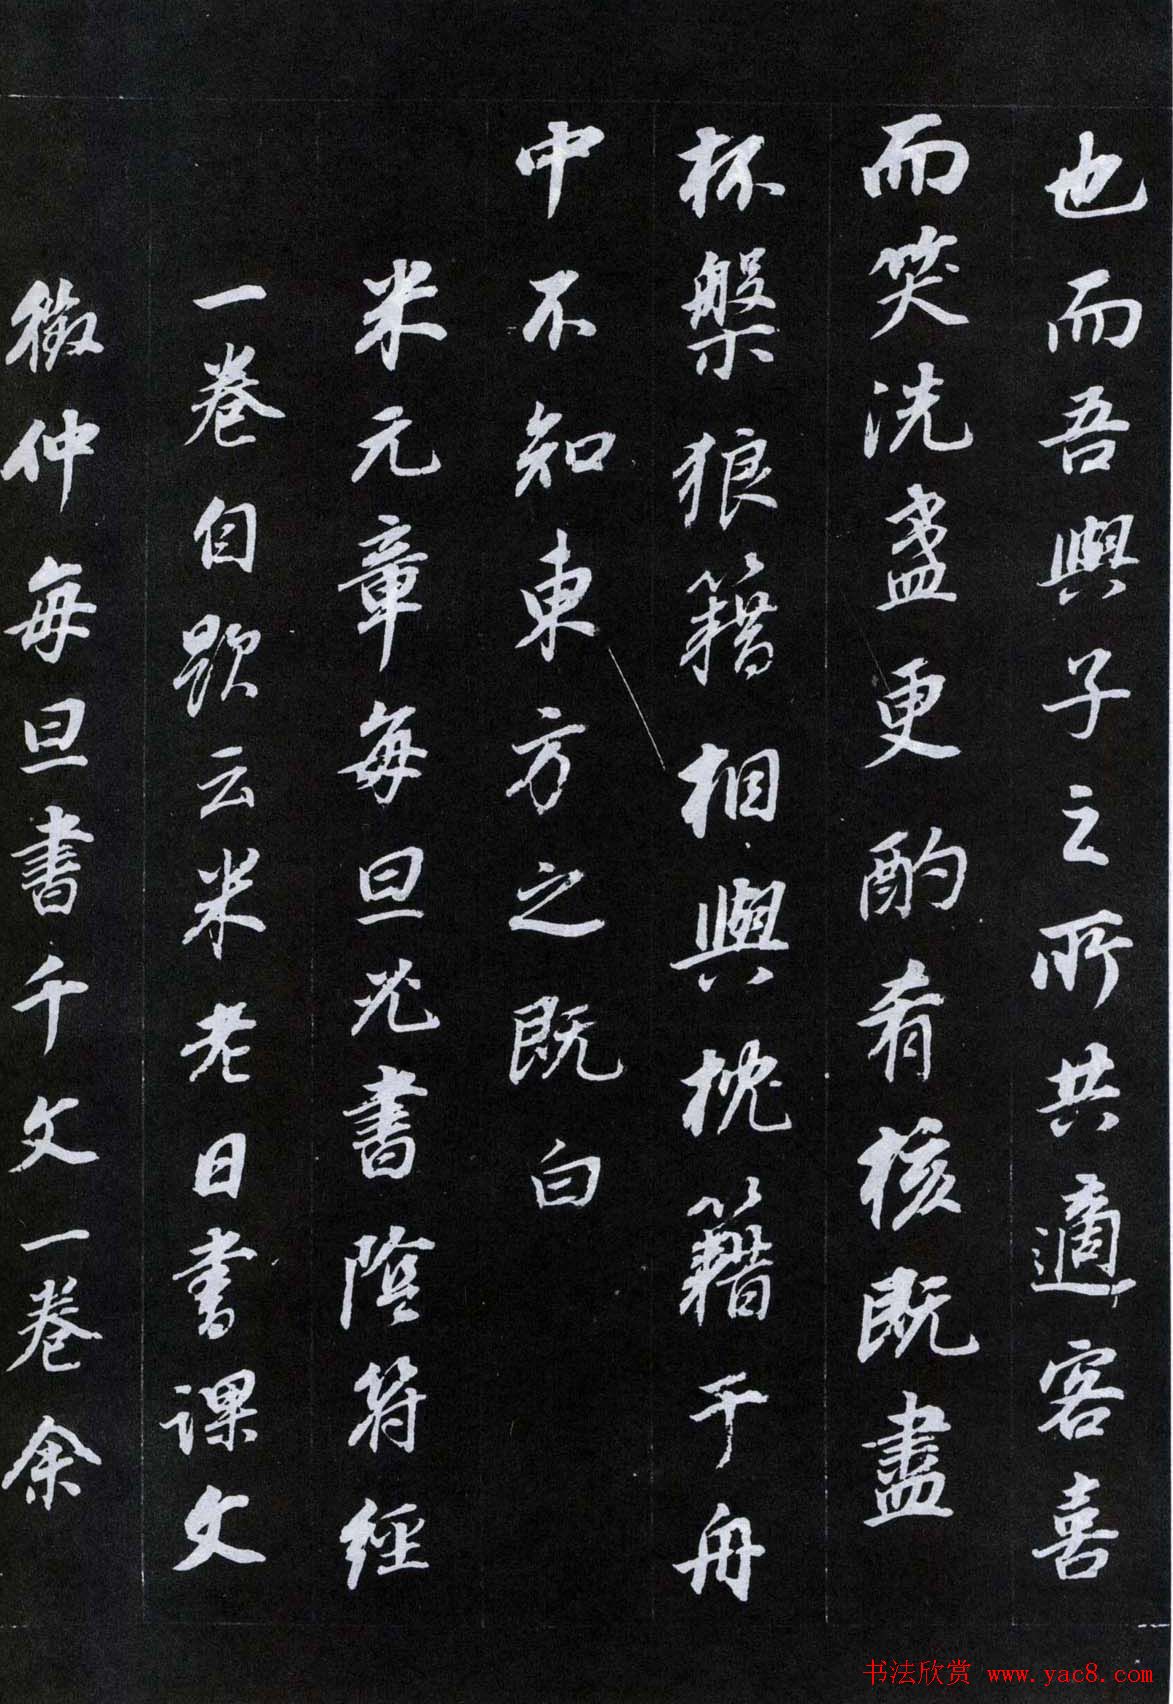 也而吾與子之所共適客喜
而笑洗盞更酌肴核既盡
杯槃狼籍相與枕籍于舟
中不知東方之既白
米元章每旦必書陰符經
一卷自題云米老日書課文
徵仲每旦書千文一卷余
书法欣赏 www.yac8.com